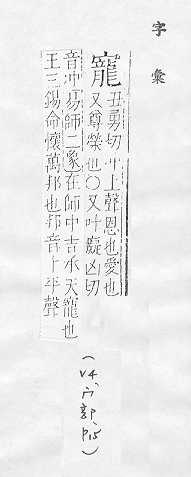 字彙
寵
丑勇切 上聲恩也愛也
又尊榮也○又叶癡凶切
音冲易師二象在師中吉承天寵也
王三錫命懷萬邦也邦音 平聲
(V4、宀部、P15)